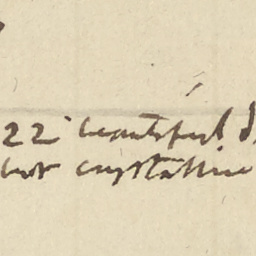 22 beautiful d
but crystalline